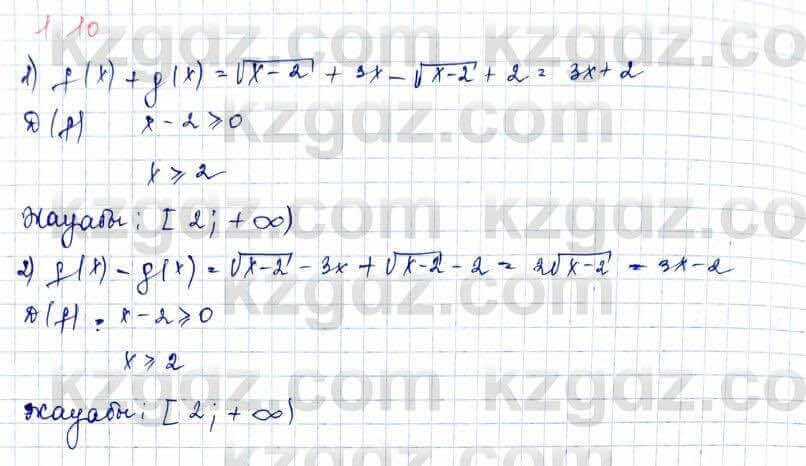 1.10
1) f(x) + g(x) = √x-2 + 3x - √x-2 + 2 = 3x + 2
D(f) x - 2 ≥ 0
x ≥ 2
Жауабы: [2; +∞)
2) f(x) - g(x) = √x-2 - 3x + √x-2 - 2 = 2√x-2 - 3x - 2
D(f): x - 2 ≥ 0
x ≥ 2
Жауабы: [2; +∞)
kzgdz.com